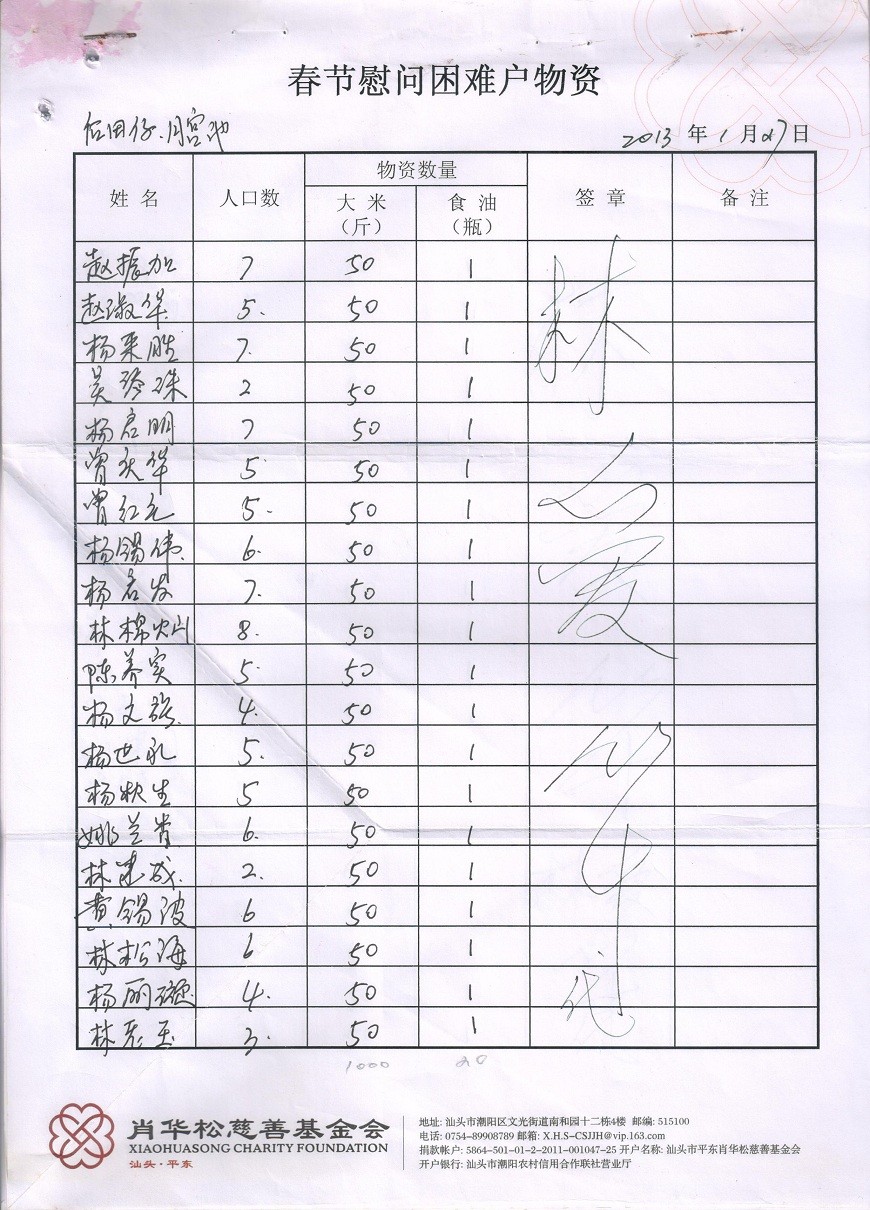 春节慰问困难户物资
2013 年 1 月 27 日
姓名 人口数 物资数量 签章 备注
大米（斤） 食油（瓶）
赵振加 7 50 1
赵淑华 5. 50 1
杨来胜 7. 50 1
吴珍珠 2 50 1
杨启明 7 50 1
曾庆华 5 50 1
曾红 5. 50 1
杨锡伟 6. 50 1
杨 发 7. 50 1
林棉灿 8. 50 1
陈养实 5 50 1
杨文 4. 50 1
杨世 5. 50 1
杨秋生 5 50 1
姚兰青 6. 50 1
林建成 2. 50 1
黄锡波 6 50 1
林松海 6 50 1
杨丽璇 4. 50 1
林 玉 3. 50 1
林
代
1000 20
肖华松慈善基金会
XIAOHUASONG CHARITY FOUNDATION
汕头·平东
地址: 汕头市潮阳区文光街道南和园十二栋4楼 邮编: 515100
电话: 0754-89908789 邮箱: X.H.S-CSJJH@vip.163.com
捐款帐户: 5864-501-01-2-2011-001047-25 开户名称: 汕头市平东肖华松慈善基金会
开户银行: 汕头市潮阳农村信用合作联社营业厅